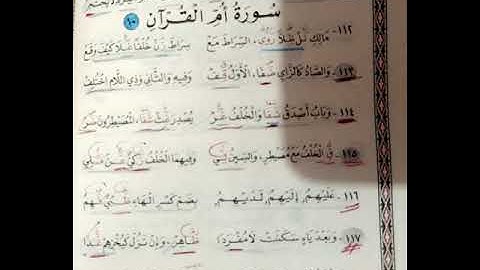 سُورَةُ أُمِّ الْقُرْآنِ ١٠
١١٢- مَالِكِ نَلْ ظِلًّا رَوَى السِّرَاطَ مَعْ سِرَاطَ زِنْ خُلْفًا غَلَا كَيْفَ وَقَعْ
١١٣- وَالصَّادُ كَالزَّايِ ضَفَا الْأَوَّلُ قِفْ وَفِيهِ وَالثَّانِي وَذِي اللَّامِ اخْتُلِفْ
١١٤- وَبَابُ أَصْدَقُ شَفَا وَالْخُلْفُ غَرْ يُصْدِرَ غِثْ شَفَا الْمُصَيْطِرُونَ ضَرْ
١١٥- قِ الْخُلْفَ مَعْ مُصَيْطِرٍ وَالسِّينُ لِي وَفِيهِمَا الْخُلْفُ زَكِيٌّ عَنْ مَلِي
١١٦- عَلَيْهِمُ إِلَيْهِمُ لَدَيْهِمُ بِضَمِّ كَسْرِ الْهَاءِ ظَبْيٌ فَهِمُ
١١٧- وَبَعْدَ يَاءٍ سَكَنَتْ لَا مُفْرَدَا ظَاهِرْ وَإِنْ تَزُلْ كَيُخْزِهِمْ غَدَا